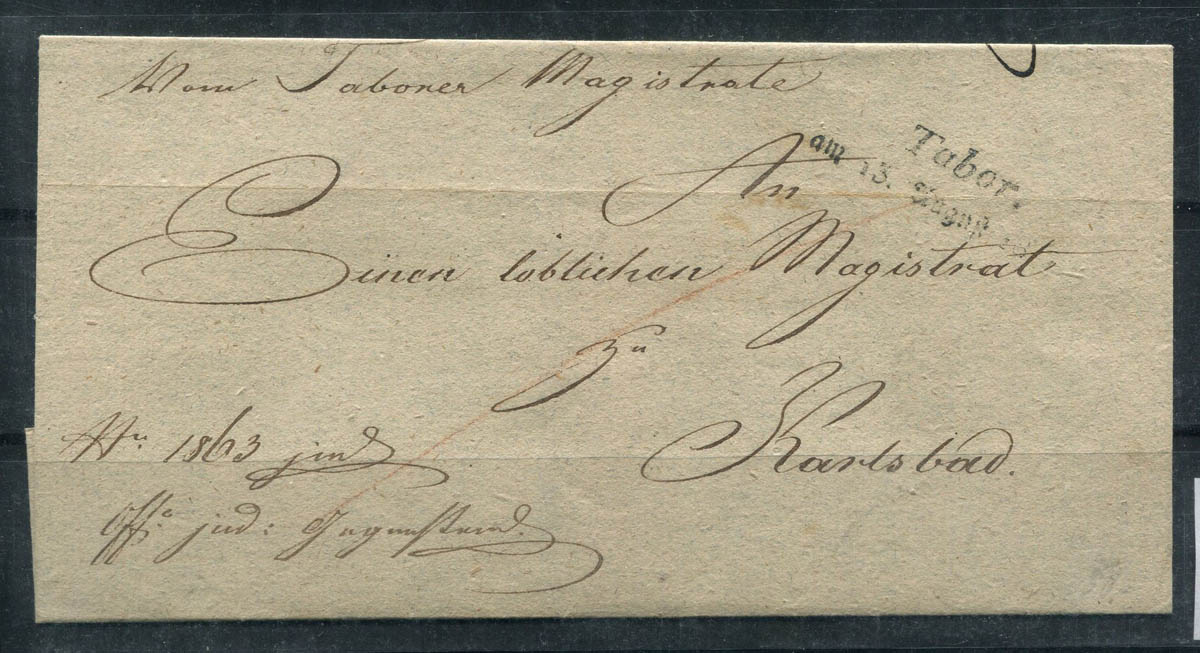 Vom Taborer Magistrate
Tabor.
am 13. August
An
Einen löblichen Magistrat
zu
Karlsbad.
Nr. 1863 jud
Offo. jud: Gegenstand.